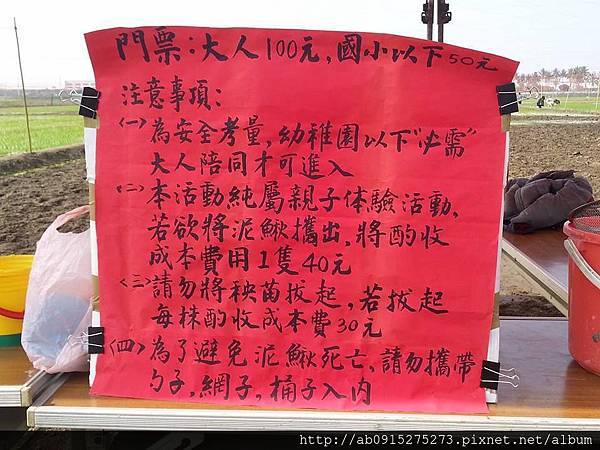 門票：大人100元，國小以下50元
注意事項：
㈠為安全考量，幼稚園以下"必需"
大人陪同才可進入
㈡本活動純屬親子体驗活動，
若欲將泥鰍攜出，將酌收
成本費用1隻40元
㈢請勿將秧苗拔起，若拔起
每株酌收成本費30元
㈣為了避免泥鰍死亡，請勿攜帶
勺子，網子，桶子入內
http://ab0915275273.pixnet.net/album